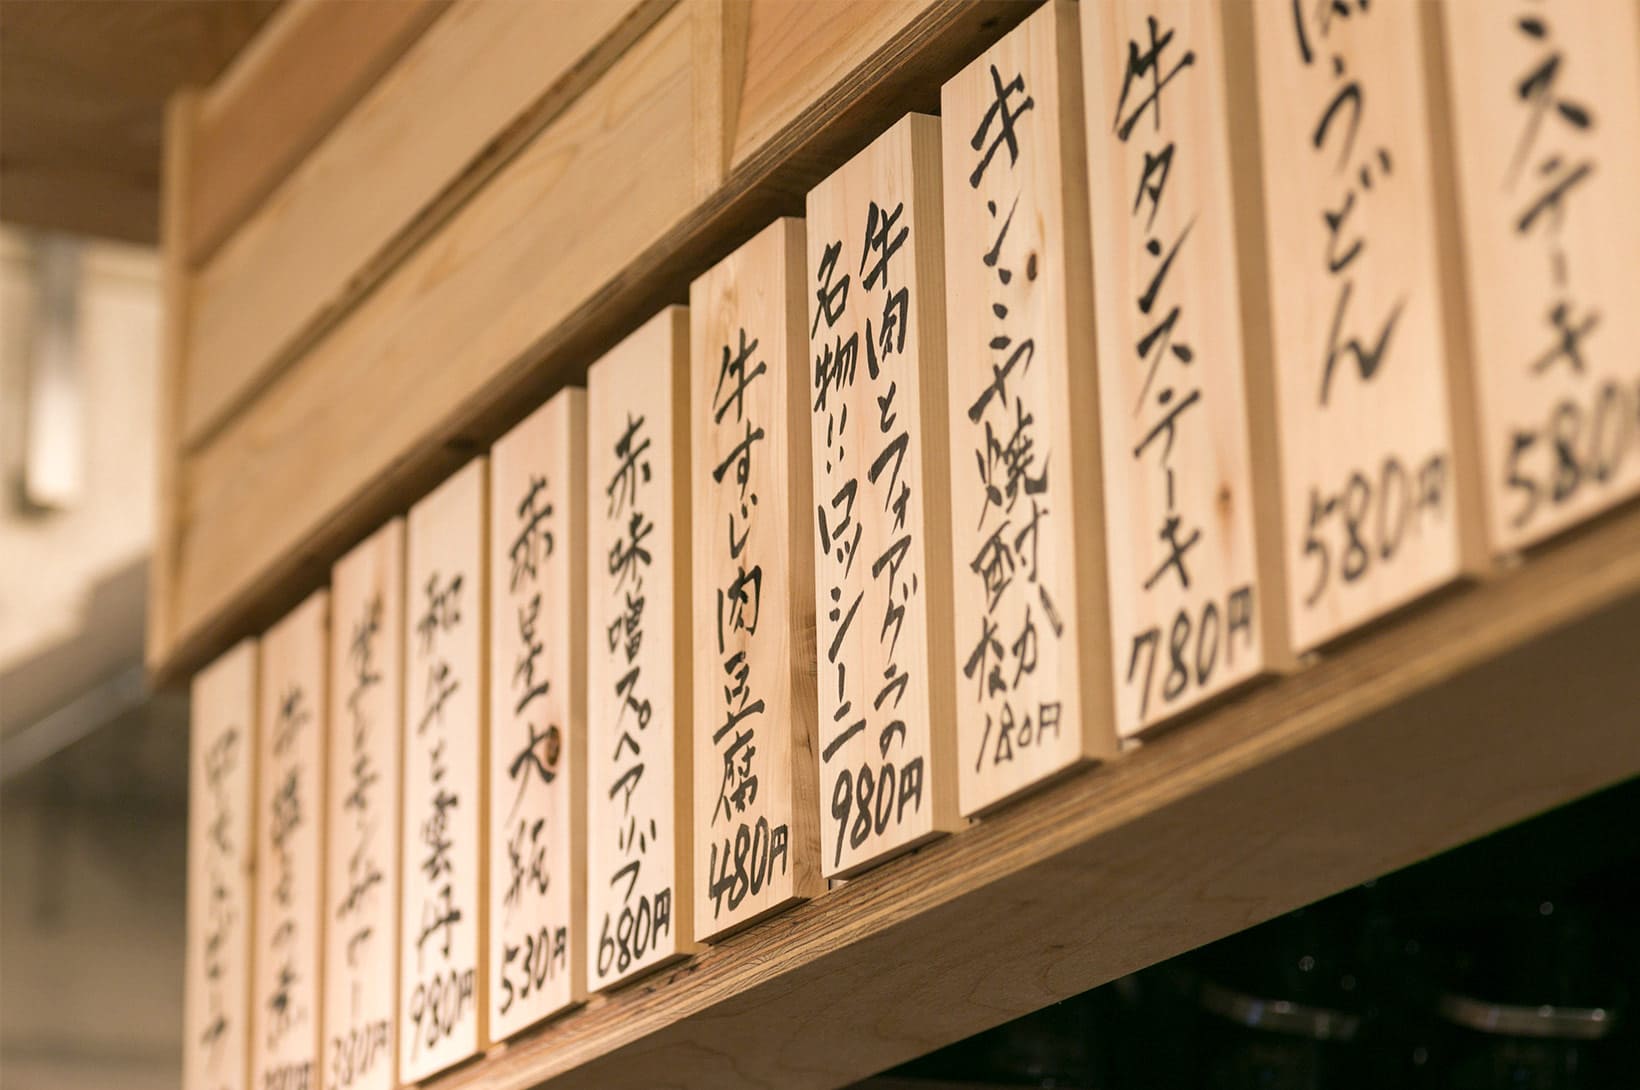 ステーキ
580
肉うどん
580円
牛タンステーキ
780円
キンミヤ焼酎
なか
180円
牛肉とフォアグラの
名物!!ロッシーニ
980円
牛すじ肉豆腐
480円
赤味噌スペアリブ
680円
赤星大瓶
530円
和牛と雲丹
980円
380円